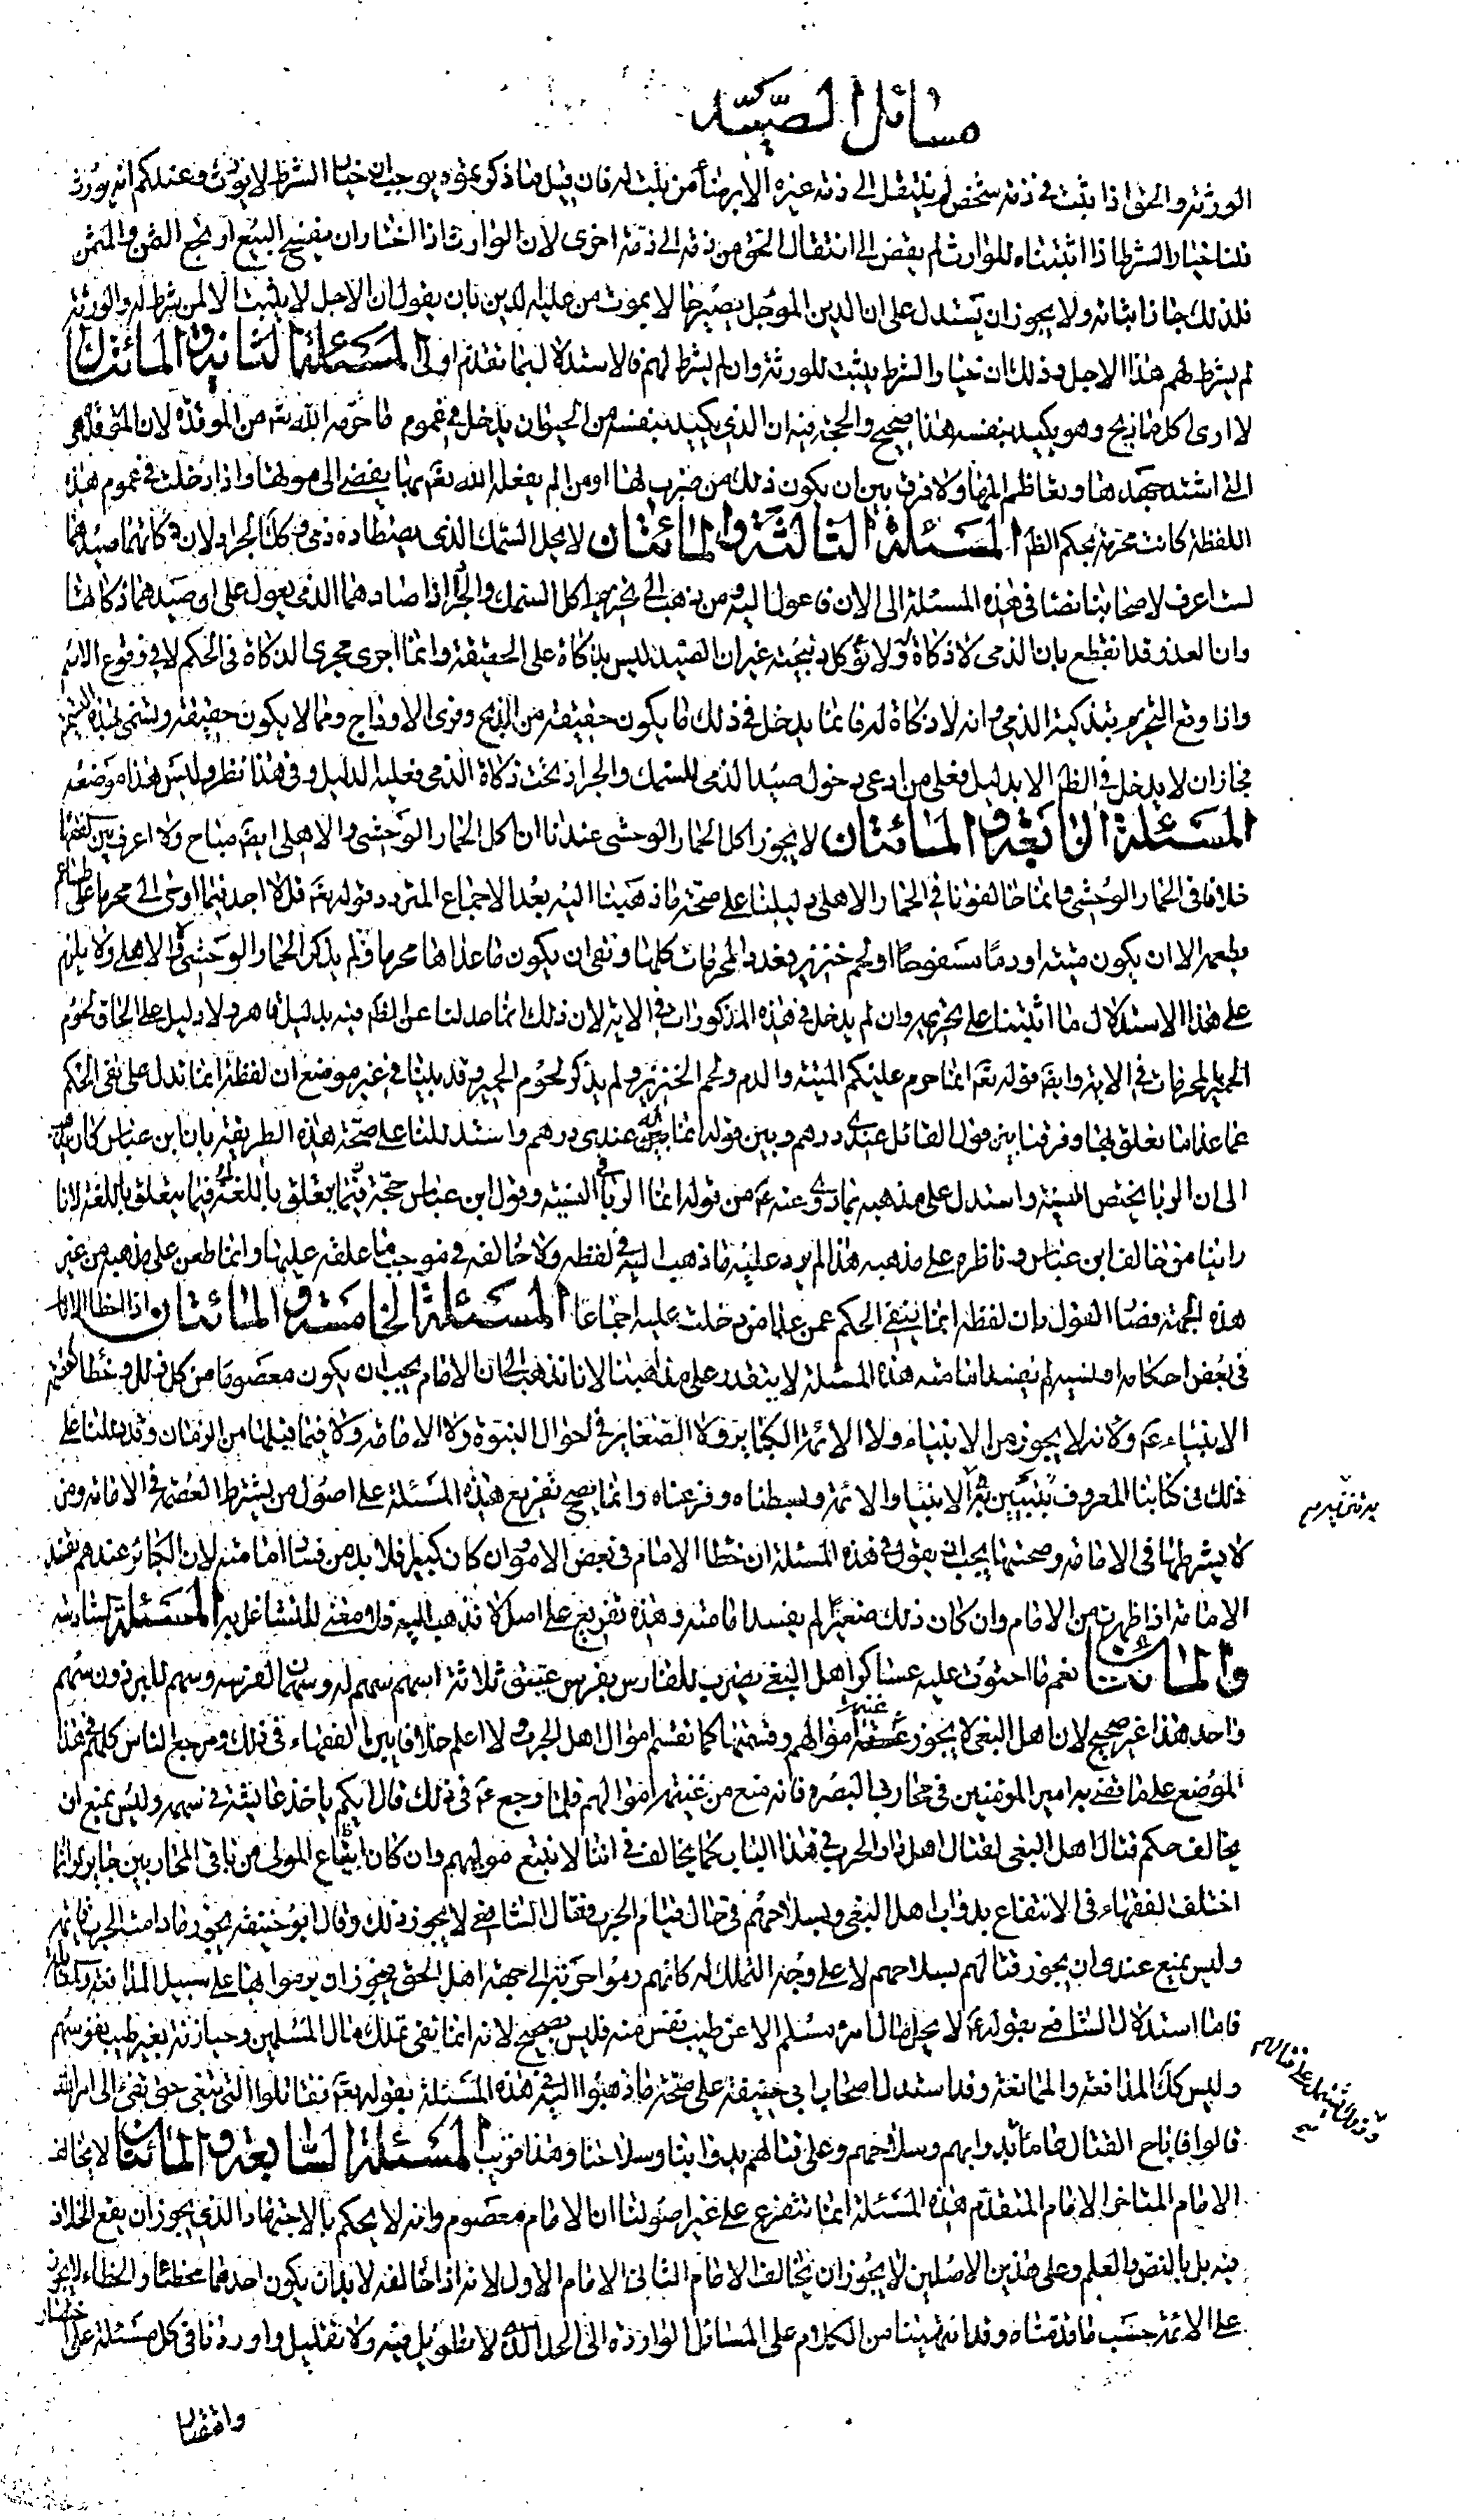 مسائل الصيد
الورثة والحق اذا ثبت في ذمة شخص لم ينتقل الى ذمة غيره الا برضا من يثبت له فان قيل ما ذكرتموه يوجب ان خيار الشرط لا يورث وعندكم انه يورث
قلنا خيار الشرط اذا اثبتناه للوارث لم يفض الى انتقال الحق من ذمة الى ذمة اخرى لان الوارث اذا اختار ان يفسخ البيع او يجمع الثمن والمثمن
فلذلك جاز اثباته ولا يجوز ان يستدل على ان الدين المؤجل يصير حالا بموت من عليه الدين بان يقول ان الاجل لا يثبت الا لمن شرط له والورثة
لم يشرط لهم هذا الاجل وذلك ان خيار الشرط يثبت للورثة وان لم يشرط لهم فالاستدلال بما تقدم اولى المسئلة الثانية والمائتان
لا ارى اكل ما ذبح وهو يكيد بنفسه هذا صحيح والحجة فيه ان الذي يكيد بنفسه من الحيوان يدخل في عموم ما حرمه الله تع من الموقوذة لان الموقوذة هي
التي اشتد جهدها وتعاظم المها ولا فرق بين ان يكون ذلك من ضرب لها او من الم يفعله الله تعم بها يفضى الى موتها واذا دخلت في عموم هذه
اللفظة كانت محرمة بحكم الظ المسئلة الثالثة والمائتان لا يحل السمك الذي يصطاده ذمي وكك الجراد لان ذكاتهما صيدهما
لست اعرف لاصحابنا نصا في هذه المسئلة الى الان فاعول اليه ومن يذهب الى تحريم اكل السمك والجراد اذا صادهما الذمي يعول على ان صيدهما ذكاتهما
وان العذر قد انقطع بان الذمي لا ذكاة له ولا تؤكل ذبيحته غير ان الصيد ليس بذكاة على الحقيقة وانما اجرى مجرى الذكاة في الحكم لا في وقوع الاسم
واذا وقع التحريم بتذكية الذمي وانه لا ذكاة له فانما يدخل في ذلك ما يكون حقيقة من الذبح وفرى الاوداج وما لا يكون حقيقة ويسمى بهذه التسمية
فجاز ان لا يدخل في الظ الا بدليل فعلى من ادعى دخول صيد الذمي للسمك والجراد تحت ذكاة الذمي فعليه الدليل وفي هذا نظر وليس هذا موضعه
المسئلة الرابعة والمائتان لا يجوز اكل الحمار الوحشي عندنا ان اكل الحمار الوحشي والاهلي ايضا مباح ولا اعرف بين الفقهاء
خلافا في الحمار الوحشي وانما خالفونا في الحمار الاهلي دليلنا على صحة ما ذهبنا اليه بعد الاجماع المتردد قوله تع قل لا اجد فيما اوحى الى محرما على طاعم
يطعمه الا ان يكون ميتة او دما مسفوحا او لحم خنزير فعدد المحرمات كلها ونفى ان يكون ما عداها محرما ولم يذكر الحمار الوحشي ولا الاهلي ولا يلزم
على هذا الاستدلال ما اثبتنا على تحريمه وان لم يدخل في هذه المذكورات في الاية لان ذلك انما عدلنا عن الظ فيه بدليل قاهر ولا دليل على الحاق لحوم
الحمير بالمحرمات في الاية وايضا قوله تعم انما حرم عليكم الميتة والدم ولحم الخنزير ولم يذكر لحوم الحمير وقد بينا في غير موضع ان لفظة انما تدل على نفي الحكم
عما عدا ما تعلق بها وفرقنا بين قول القائل عندي درهم وبين قوله انما له عندي درهم واستدللنا على صحة هذه الطريقة بان ابن عباس كان يذهب
الى ان الربا يختص النسية واستدل على مذهبه بما روى عنه ع من قوله انما الربا في النسية وقول ابن عباس حجة فيما يتعلق باللغة فيما يتعلق باللغة لانا
راينا من خالف ابن عباس وناظره على مذهبه هذا لم يرد عليه ما ذهب اليه في لفظه ولا خالفه في موجب ما علقه عليها وانما طعن على مذهبه من غير
هذه الجهة فصار القول بان لفظة انما ينفي الحكم عمن عدا من دخلت عليه اجماعا المسئلة الخامسة والمائتان واذا اخطا الامام
في بعض احكامه او نسيه لم يفسد امامته هذه المسئلة لا يتقدر على مذاهبنا لانا نذهب الى ان الامام يجب ان يكون معصوما من كل زلل وخطا كعصمة
الانبياء ع ولانه لا يجوز من الانبياء ولا الائمة الكبائر ولا الصغاير في احوال النبوة ولا الامامة ولا فيما قبلها من الزمان وقد دللنا على
ذلك في كتابنا المعروف بتنزيه الانبياء والائمة وبسطناه وفرعناه وانما يصح تفريع هذه المسئلة على اصول من يشترط العصمة في الامامة ومن
لا يشرطها في الامامة وصحتها يجب ان يقول في هذه المسئلة ان خطا الامام في بعض الامور ان كان كبيرا فلا بد من فساد امامته لان الكبائر عندهم يفسد
الامامة اذا ظهرت من الامام وان كان ذلك صغيرا لم يفسد امامته وهذه تفريع على اصل لا نذهب اليه فلا معنى للتشاغل به المسئلة السادسة
والمائتان نعم ما احتوت عليه عساكر اهل البغي يضرب للفارس بفرس عتيق ثلاثة اسهم سهم له وسهمان لفرسه وسهم للبرذون سهم
واحد هذا غير صحيح لان اهل البغي لا يجوز غنيمة اموالهم وقسمتها كما تقسم اموال اهل الحرب لا اعلم خلافا بين الفقهاء في ذلك ومرجع الناس كلهم في هذا
الموضع على ما قضى به امير المؤمنين في محاربي البصرة فانه منع من غنيمة اموالهم فلما روجع ع في ذلك قال ايكم ياخذ عائشة في سهمه وليس يمتنع ان
يخالف حكم قتال اهل البغي لقتال اهل دار الحرب في هذا الباب كما يخالف في اننا لا نتبع موليهم وان كان اتباع المولى من باقي المحاربين جايزا وانما
اختلف الفقهاء في الانتفاع بدواب اهل البغي وبسلاحهم في حال قيام الحرب فقال الشافعي لا يجوز ذلك وقال ابو حنيفة يجوز ما دامت الحرب قائمة
وليس يمتنع عندي ان يجوز قتالهم بسلاحهم لا على وجه التملك له كانهم رموا حربة الى جهة اهل الحق فيجوز ان يرموا بها على سبيل المدافعة
فاما استدلال الشافعي بقوله ع لا يحل مال امرء مسلم الا عن طيب نفس منه فليس بصحيح لانه انما نفى تملك مال المسلمين وحيازته بغير طيب نفوسهم
وليس كك المدافعة والممانعة وقد استدل اصحاب ابي حنيفة على صحة ما ذهبوا اليه في هذه المسئلة بقوله تعم فقاتلوا التي تبغى حتى تفئ الى امر الله
قالوا فاباح القتال عاما بدوابهم وسلاحهم وعلى قتالهم بدوابنا وسلاحنا وهذا قريب المسئلة السابعة والمائتان لا يخالف
الامام المتاخر الامام المتقدم هذه المسئلة انما تتفرع على غير اصولنا ان الامام معصوم وانه لا يحكم بالاجتهاد الذي يجوز ان يقع الخلاف
فيه بل بالنص والعلم وعلى هذين الاصلين لا يجوز ان يخالف الامام الثاني الامام الاول لانه اذا خالفه لا بد ان يكون احدهما مخطئا والخطاء لا يجوز
على الائمة حسب ما قدمناه وقد انتهينا من الكلام على المسائل الواردة الى الحد الذي لا تطويل فيه ولا تقليل واوردنا في كل مسئلة على اختصار
واقفنا